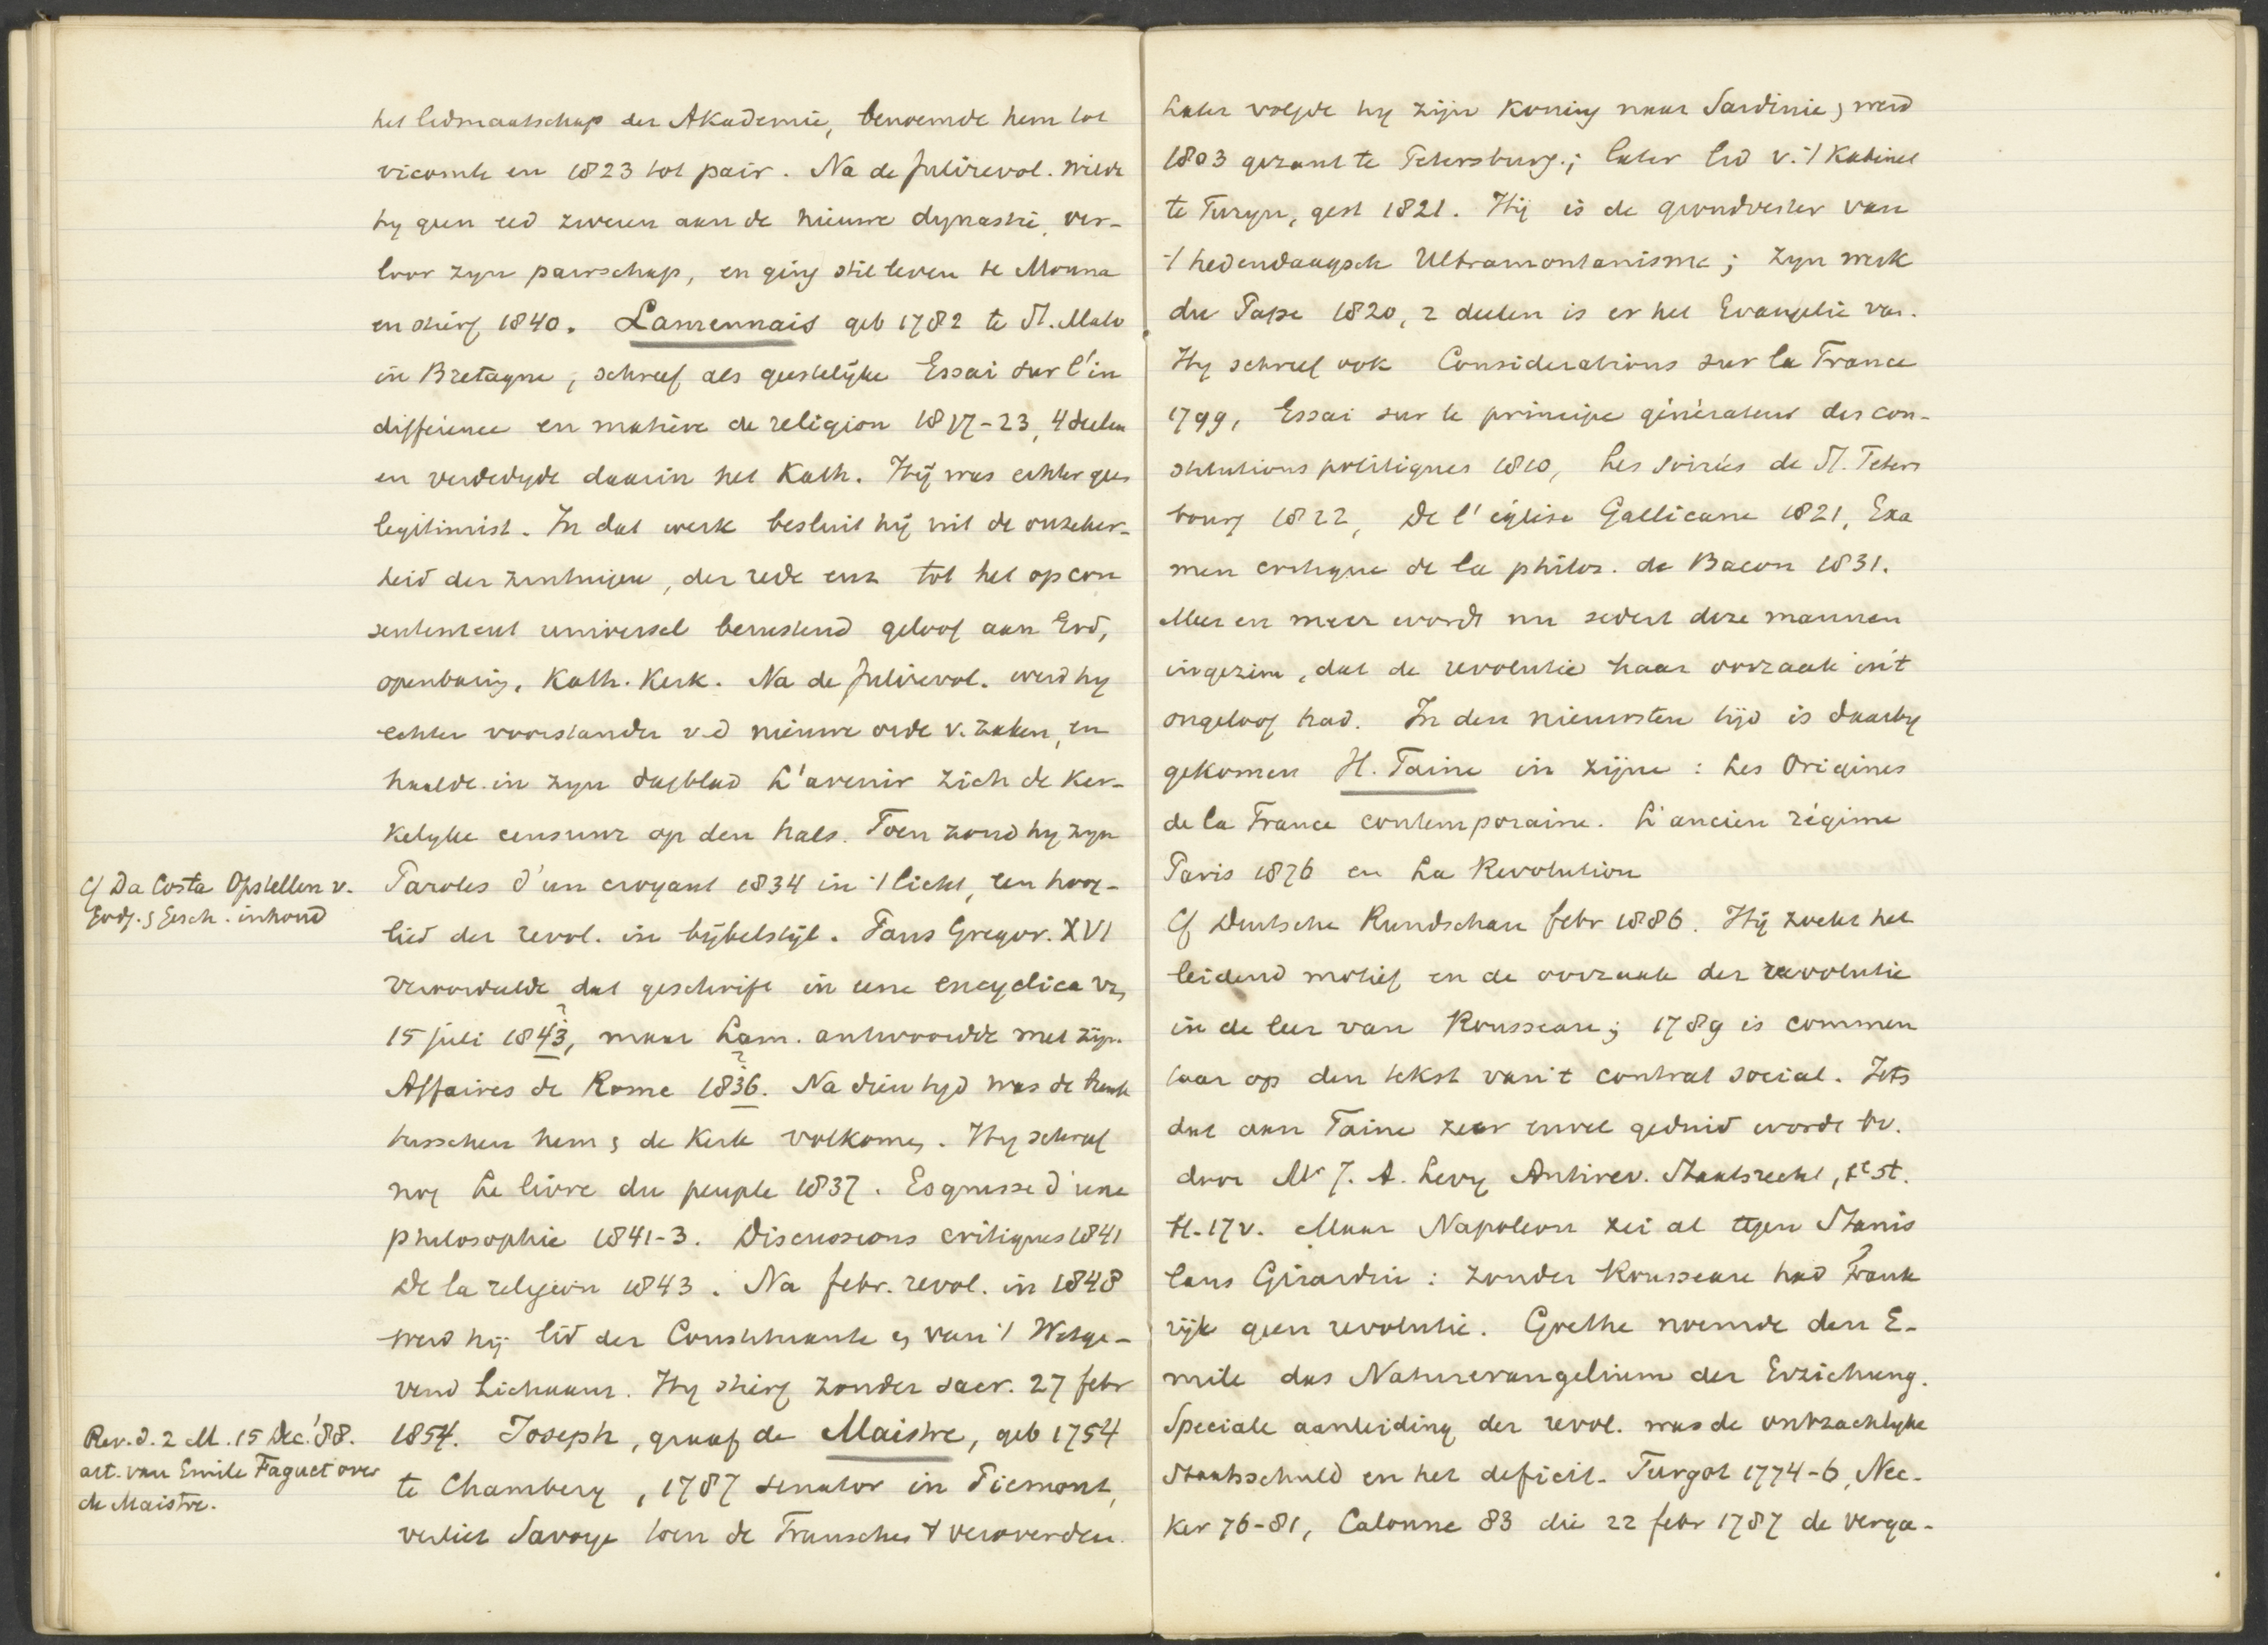 het lidmaatschap der Akademie, benoemde hem tot
vicomte en 1823 tot pair. Na de Julirevol. wilde
hy geen eed zweren aan de nieuwe dynastie, ver-
loor zyn pairschap, en ging stil leven te Monna
en stierf 1840. Lamennais geb 1782 te St. Malo
in Bretagne, schreef als geestelijke Essai sur l'in
différence en matière de religion 1817-23, 4 deelen
en verdedigde daarin het Kath. Hij was echter geen
legitimist. In dat werk besluit hij uit de onzeker-
heid der zintuigen, der rede enz tot het op con
sentement universel berustend geloof aan God,
openbaring, Kath. Kerk. Na de Julirevol. werd hy
echter voorstander v.d nieuwe orde v. zaken, en
haalde in zyn dagblad L'avenir zich de ker-
kelyke censuur op den hals. Toen zond hy zyn
Cf Da Costa Opstellen v.
Godg. & Gesch. inhoud
Paroles d'un croyant 1834 in 't licht, een hoog-
lied der revol. in bijbelstijl. Paus Gregor. XVI
veroordeelde dat geschrift in eene encyclica van
15 juli 1843?, maar Lam. antwoordde met zijn
Affaires de Rome 1836?. Na dien tyd was de breuk
tusschen hem & de Kerk volkomen. Hy schreef
nog Le livre du peuple 1837. Esquisse d'une
philosophie 1841-3. Discussions critiques 1841
De la religion 1843. Na febr. revol. in 1848
werd hij lid der Constituante en van 't Wetge-
vend Lichaam. Hy stierf zonder sacr. 27 febr
Rev. d. 2 M. 15 Dec. '88.
art. van Emile Faguet over
de Maistre.
1854. Joseph, graaf de Maistre, geb 1754
te Chambery, 1787 senator in Piemont,
verliet Savoye toen de Franschen 't veroverden.
Later volgde hy zijn Koning naar Sardinie, werd
1803 gezant te Petersburg.; later lid v. 't Kabinet
te Turyn, gest 1821. Hij is de grondvester van
't hedendaagsch Ultramontanisme; zyn werk
du Pape 1820, 2 deelen is er het Evangelie van.
Hy schreef ook Considerations sur la France
1799, Essai sur le principe générateur des con-
stitutions politiques 1810, Les soirées de St. Peters
bourg 1822, De l'église Gallicane 1821, Exa
men critique de la philos. de Bacon 1831.
Meer en meer wordt nu sedert deze mannen
ingezien, dat de revolutie haar oorzaak in't
ongeloof had. In den nieuwsten tijd is daarby
gekomen H. Taine in zijne: Les Origines
de la France contemporaine. L'ancien régime
Paris 1876 en La Revolution
Cf Deutsche Rundschau febr 1886. Hij zoekt het
leidend motief en de oorzaak der revolutie
in de leer van Rousseau; 1789 is commen
taar op den tekst van't contrat social. Iets
dat aan Taine zeer euvel geduid wordt bv.
door Mr J. A. Levy Antirev. Staatsrecht, 1e st.
bl. 17 v. Maar Napoleon zei al tegen Stanis
laus Girardin: zonder Rousseau had Frank
rijk geen revolutie. Goethe noemde den E-
mile das Naturevangelium der Erziehung.
Speciale aanleiding der revol. was de ontzachlyke
Staatsschuld en het deficit. Turgot 1774-6, Nec-
ker 76-81, Calonne 83 die 22 febr 1787 de verga-